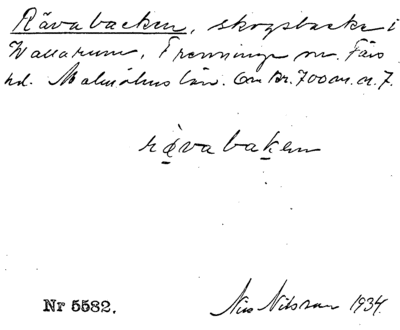 Rävabacken, skogsbacke i
Wallarum, Frenninge sn. Färs
hd. Malmöhus län. Om Br. 700 m. n. 7.
rävabaken
Nr 5582.
Nils Nilsson 1934.